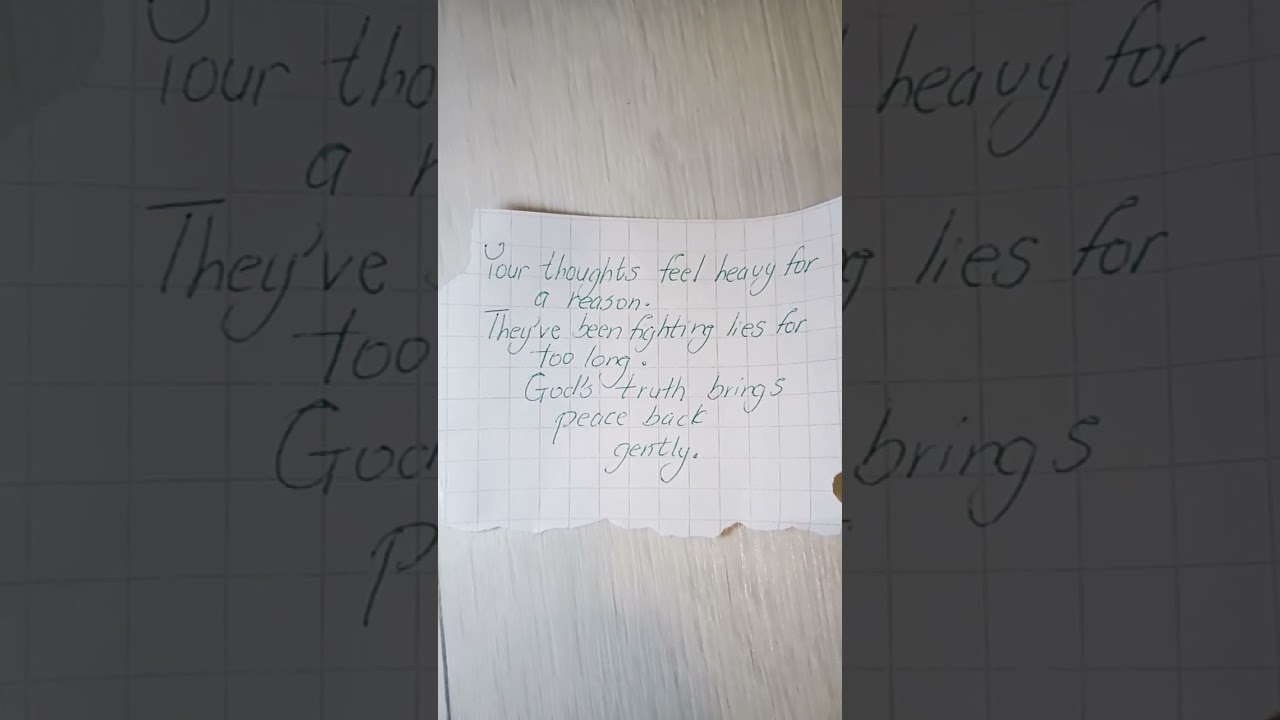 Your thoughts feel heavy for
a reason.
They've been fighting lies for
too long.
God's truth brings
peace back
gently.